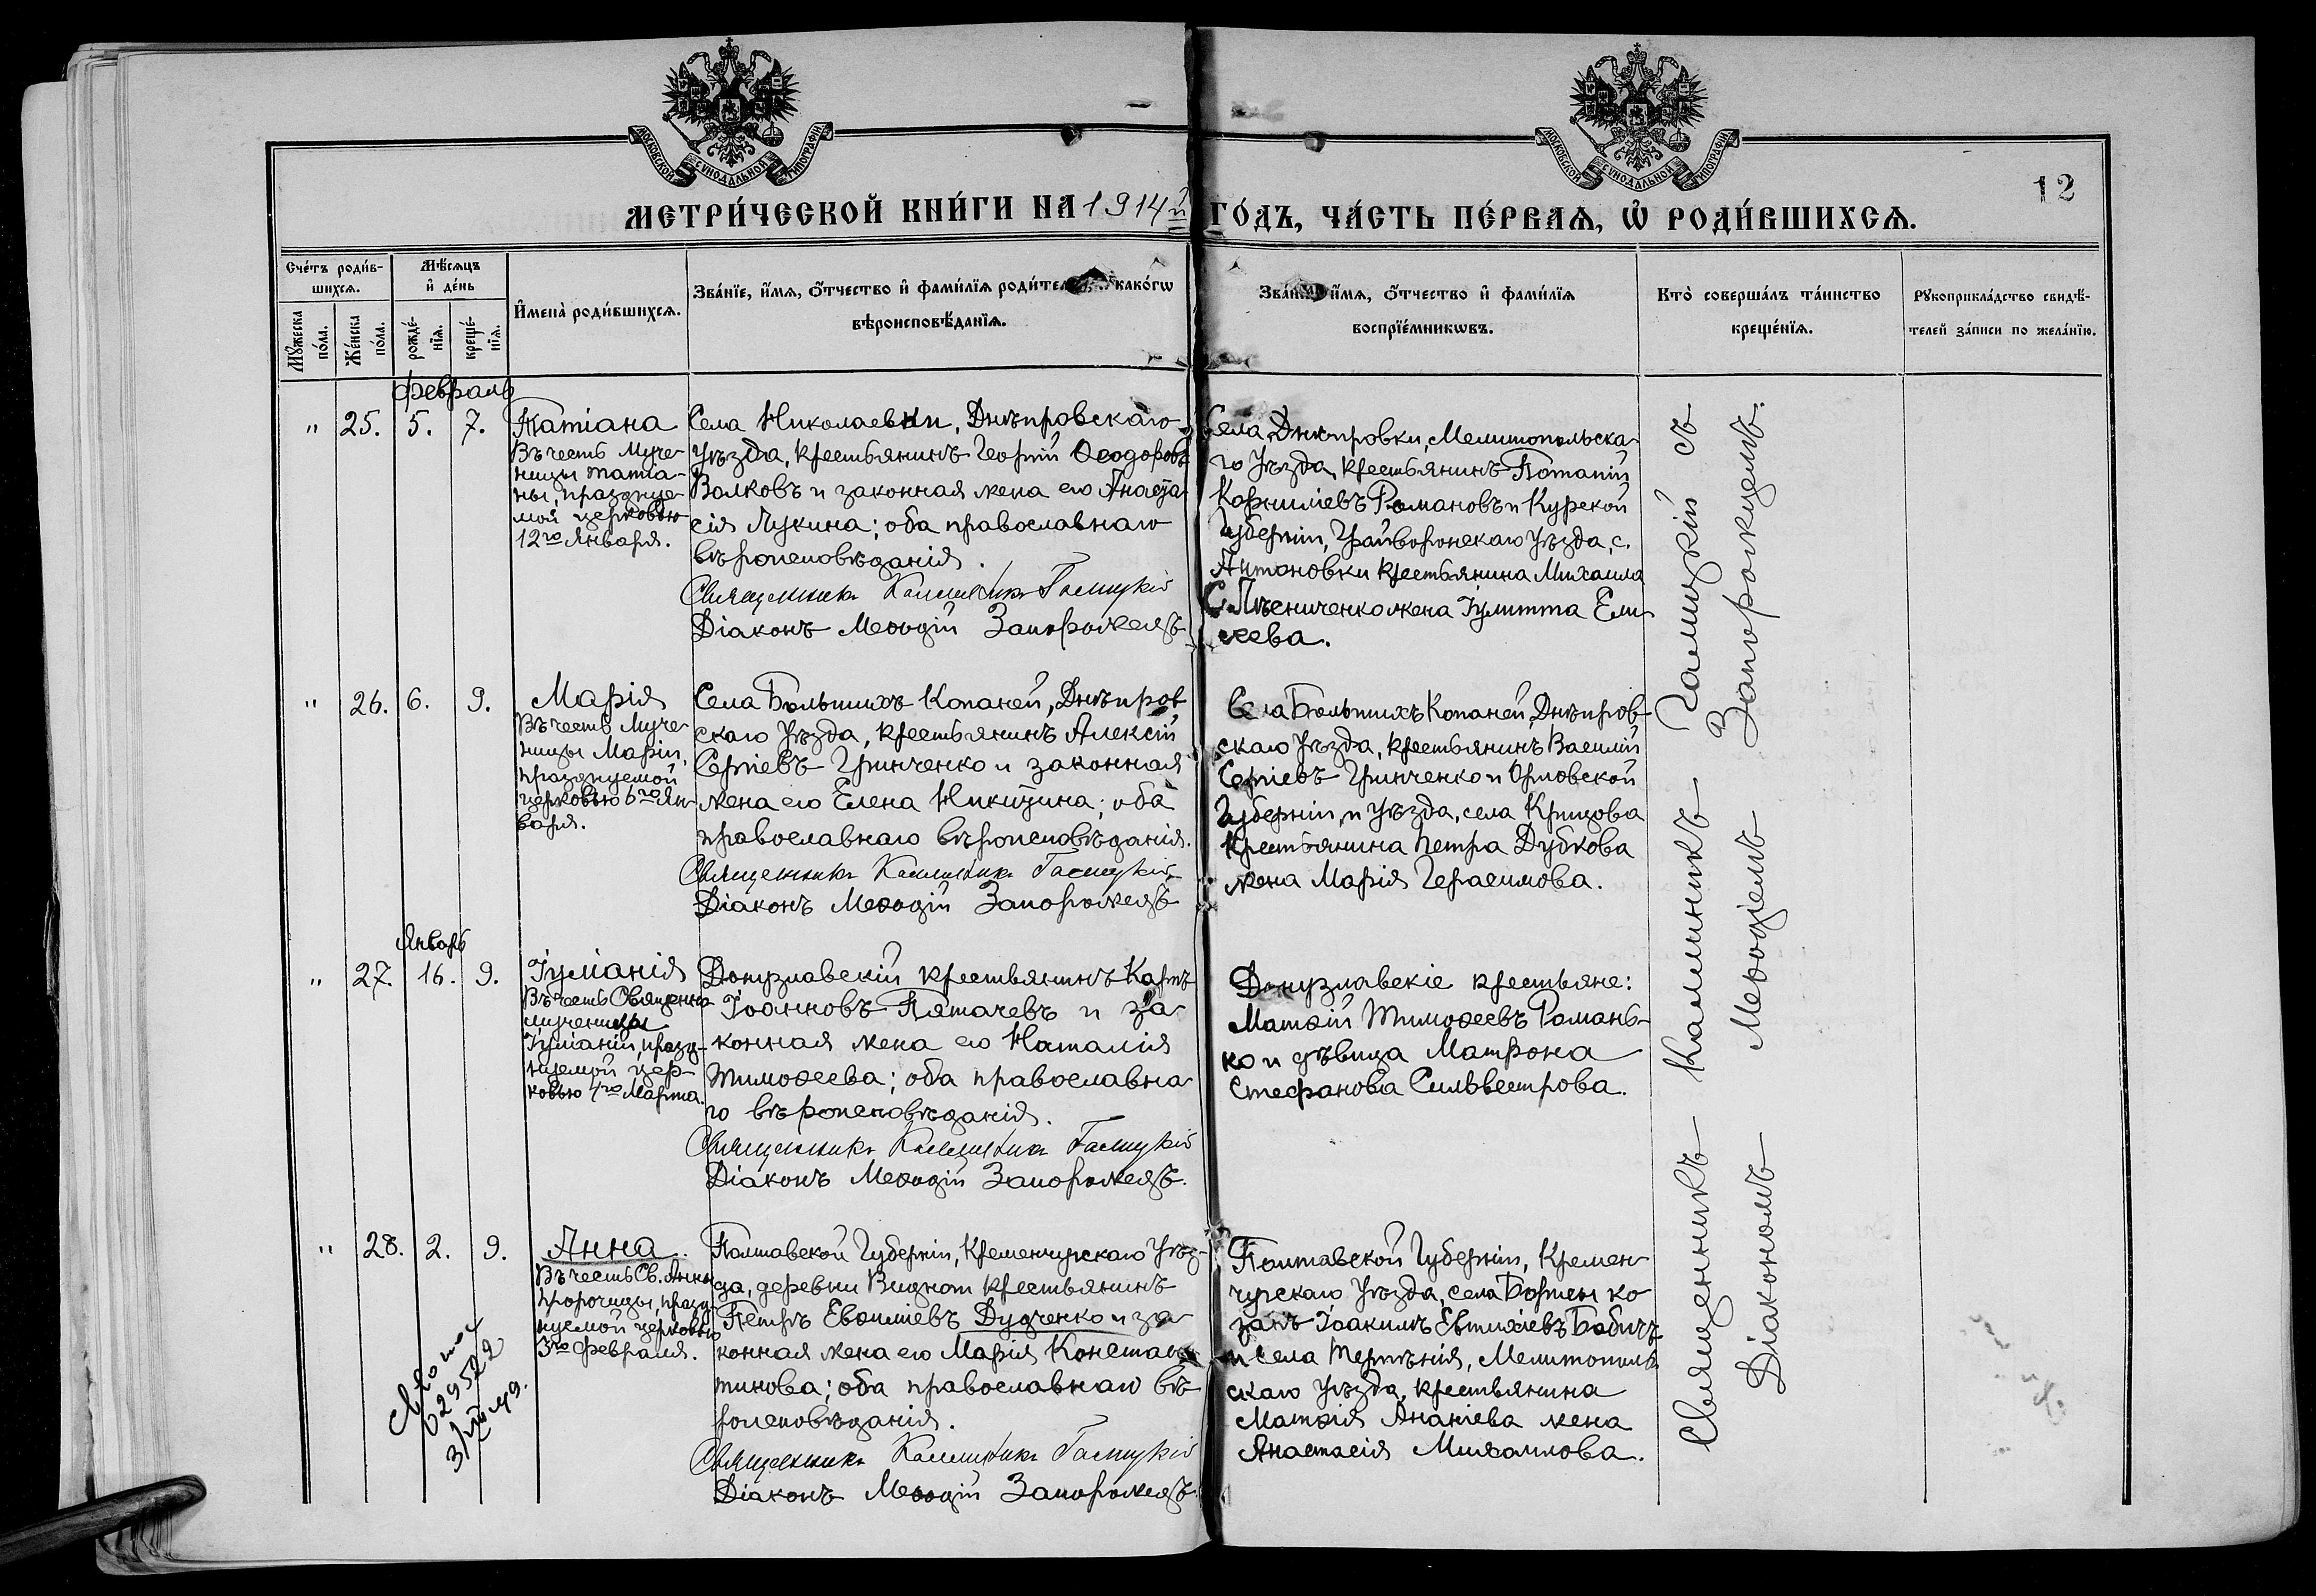 МОСКОВСКОЙ СѴНОДАЛЬНОЙ ТИПОГРАФІИ
МОСКОВСКОЙ СѴНОДАЛЬНОЙ ТИПОГРАФІИ
12
МЕТРИ́ЧЕСКОЙ КНИ́ГИ НА 1914й ГО́ДЪ, ЧА́СТЬ ПЕ́РВАѦ, Ѡ РОДИ́ВШИХСѦ.
Сче́тъ роди́в-
шихсѧ.
Мѣ́сѧцъ
и де́нь
Мꙋ́жеска по́ла.
Же́нска по́ла.
рожде́-нїѧ.
креще́-нїѧ.
И҆мена̀ роди́вшихсѧ.
Зва́нїе, и҆́мѧ, ѻ҆́тчество и҆ фамѝлїѧ роди́тел како́гѡ
вѣроисповѣ́данїѧ.
Зва́н и҆́мѧ, ѻ҆́тчество и҆ фамѝлїѧ
воспрїе́мникѡвъ.
Кто̀ соверша́лъ та́инство
креще́нїѧ.
Рꙋкоприкла́дство свидѣ́-
телей за́писи по жела́нїю.
Февраль
" 25. 5. 7.
Татіана
Въ честь Муче-
ницы Татіа-
ны, празднуе-
мой церковью
12го Января.
Села Николаевки, Днѣпровскаго
уѣзда, крестьянинъ Георгій Ѳеодоровъ
Волковъ и законная жена его Анаста-
сія Лукина; оба православнаго
вѣроисповѣданія.
Священникъ Каллиникъ Галицкій
Діаконъ Меѳодій Запорожецъ
Села Днѣпровки, Мелитопольска-
го уѣзда, крестьянинъ Потапій
Корниліевъ Романовъ и Курской
Губерніи, Грайворонскаго уѣзда, с.
Антоновки крестьянина Михаила
Пшениченко жена Іулитта Ели-
сеева.
" 26. 6. 9.
Марія
Въ честь Муче-
ницы Маріи,
празднуемой
церковью 6го Ян-
варя.
Села Большихъ Копаней, Днѣпров-
скаго уѣзда, крестьянинъ Алексій
Сергіевъ Гринченко и законная
жена его Елена Никитина; оба
православнаго вѣроисповѣданія.
Священникъ Каллиникъ Галицкій
Діаконъ Меѳодій Запорожецъ
Села Большихъ Копаней, Днѣпров-
скаго уѣзда, крестьянинъ Василій
Сергіевъ Гринченко и Орловской
Губерніи, и уѣзда, села Крицова
крестьянина Петра Дубкова
жена Марія Герасимова.
Январь
" 27. 16. 9.
Іуліанія
Въ честь Священно-
мученицы
Іуліаніи, празд-
нуемой цер-
ковью 4го Марта.
Донузлавскій крестьянинъ Карпъ
Іоанновъ Пятачевъ и за-
конная жена его Наталія
Тимоѳеева; оба православна-
го вѣроисповѣданія.
Священникъ Каллиникъ Галицкій
Діаконъ Меѳодій Запорожецъ.
Донузлавскіе крестьяне:
Матѳій Тимоѳеевъ Романь-
ко и дѣвица Матрона
Стефанова Сильвестрова.
" 28. 2. 9.
Анна
Въ честь Св. Анны
пророчицы, празд-
нуемой церковью
3го Февраля.
029522
Полтавской Губерніи, Кременчугскаго уѣз-
да, деревни крестьянинъ
Петръ Евѳиміевъ Дудченко и за-
конная жена его Марія Констан-
тинова; оба православнаго вѣ-
роисповѣданія.
Священникъ Каллиникъ Галицкій
Діаконъ Меѳодій Запорожецъ.
Полтавской Губерніи, Кремен-
чугскаго уѣзда, села ко-
закъ Іоакимъ Евтихіевъ Бабичъ
и села Терпѣнія, Мелитополь-
скаго уѣзда, крестьянина
Матѳія Ананіева жена
Анастасія Михаилова.
Священникъ Каллиникъ Галицкій съ
Діакономъ Меѳодіемъ Запорожцемъ.